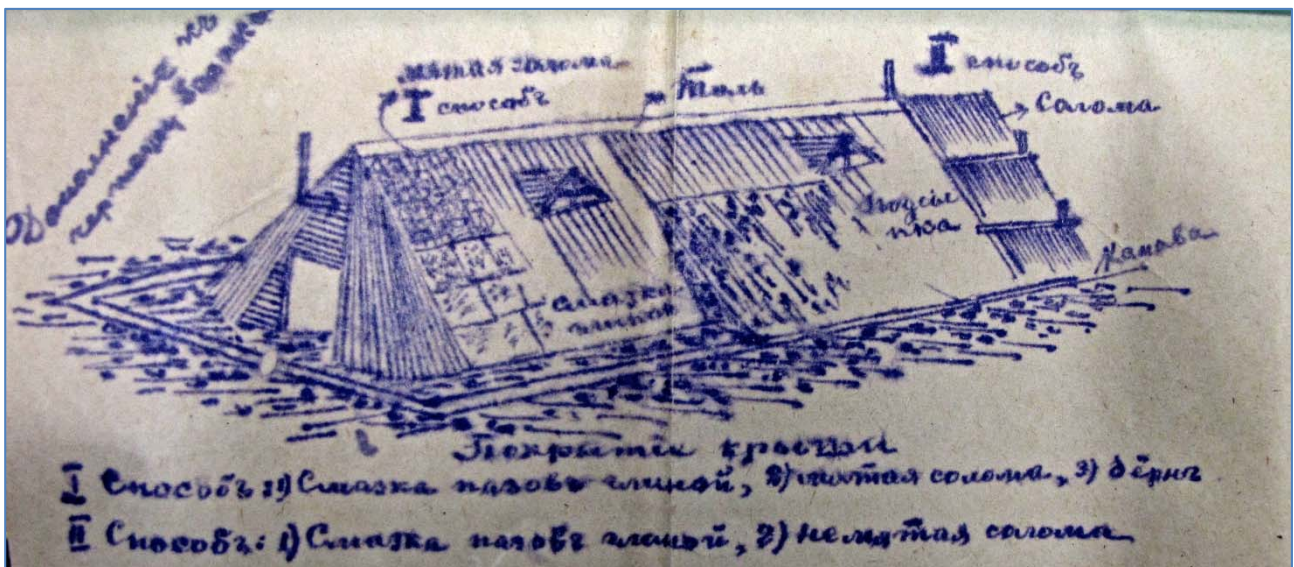 Дополненiе къ
чертежу
мятая солома
I способъ
Толь
II способъ
Солома
Подсы
пка
Канава
Смазка
глиной
Покрытiе крыши
I Способъ: 1) Смазка пазовъ глиной, 2) мятая солома, 3) дёрнъ
II Способъ: 1) Смазка пазовъ глиной, 2) немятая солома